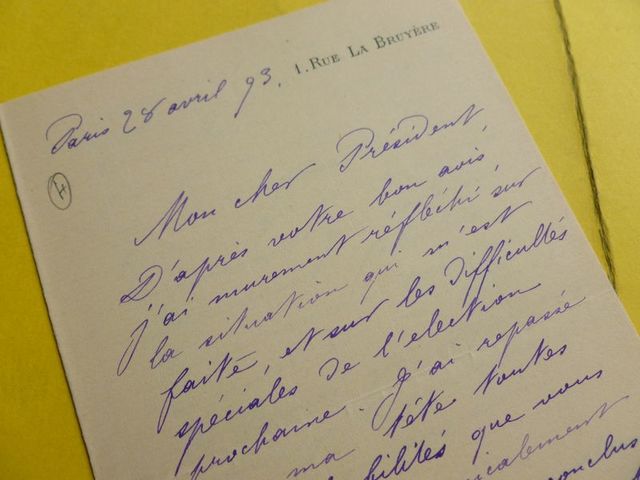 1. RUE LA BRUYÈRE
Paris 28 avril 93.
Mon cher Président,
D'après votre bon avis,
j'ai murement réfléchi sur
la situation qui m'est
faite, et sur les difficultés
spéciales de l'election
prochaine. J'ai repassé
ma tête toutes
que vous